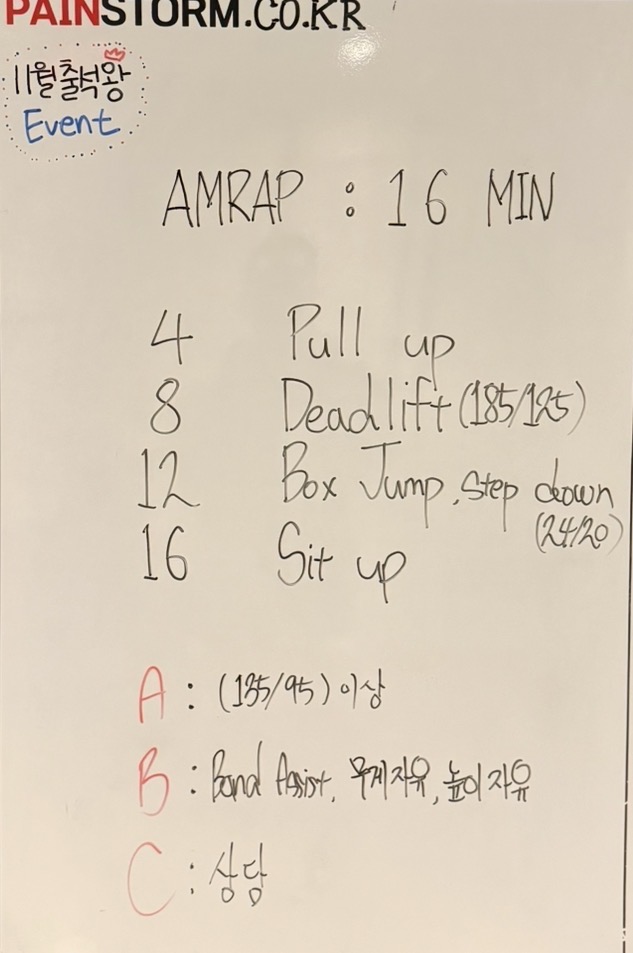 PAINSTORM.CO.KR
11월 출석왕
Event
AMRAP : 16 MIN
4 Pull up
8 Deadlift (185/125)
12 Box Jump, Step down
(24/20)
16 Sit up
A : (135/95) 이상
B : Band Assist, 무게자유, 높이자유
C : 상담